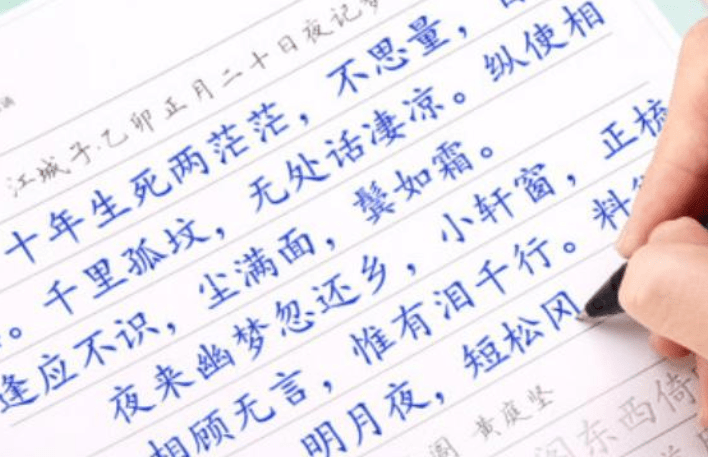 江城子·乙卯正月二十日夜记梦
十年生死两茫茫，不思量，
。千里孤坟，无处话凄凉。纵使相
逢应不识，尘满面，鬓如霜。
夜来幽梦忽还乡，小轩窗，正梳
相顾无言，惟有泪千行。料
明月夜，短松冈
阁 黄庭坚
阁东西倚